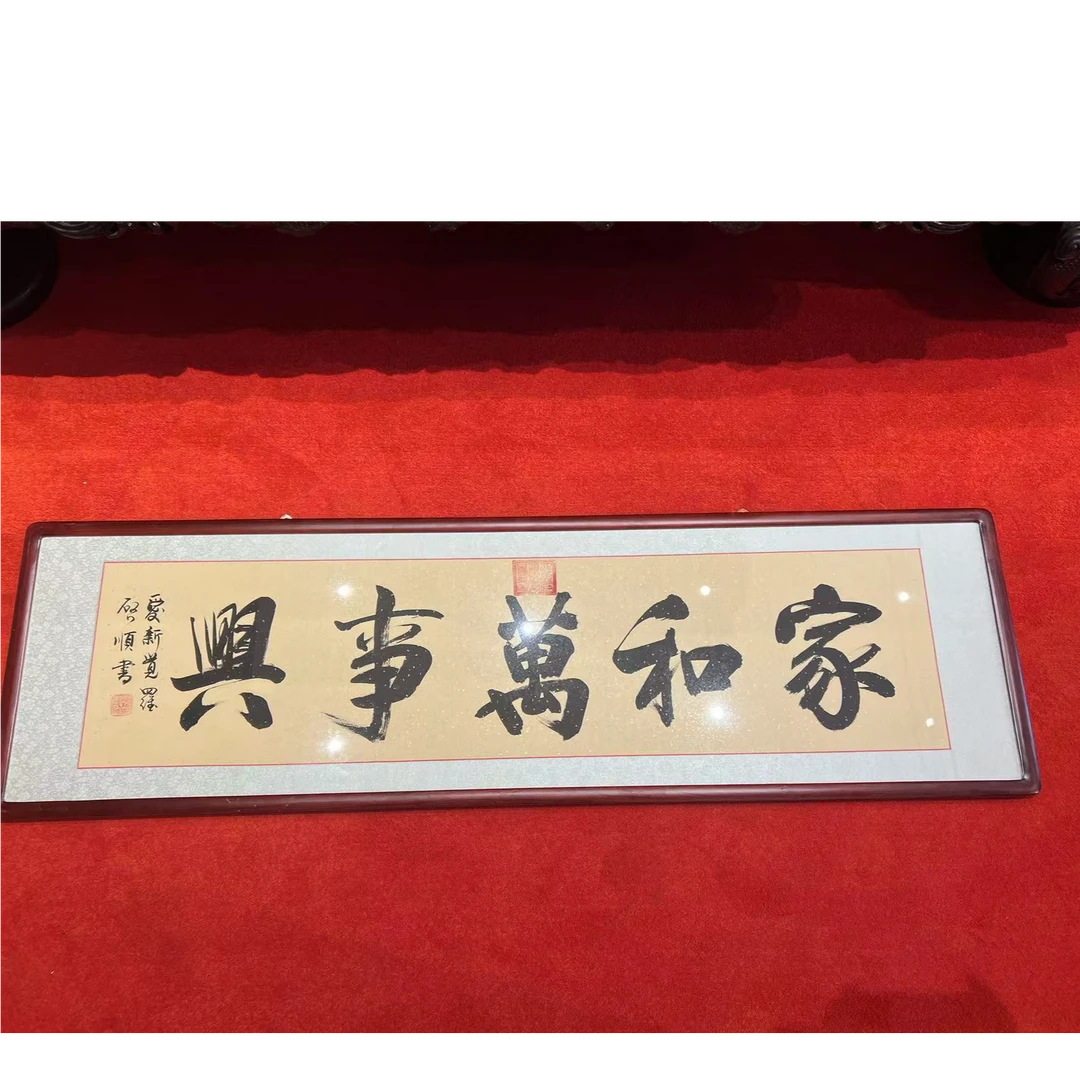 家和萬事興
愛新覚羅
啓順書